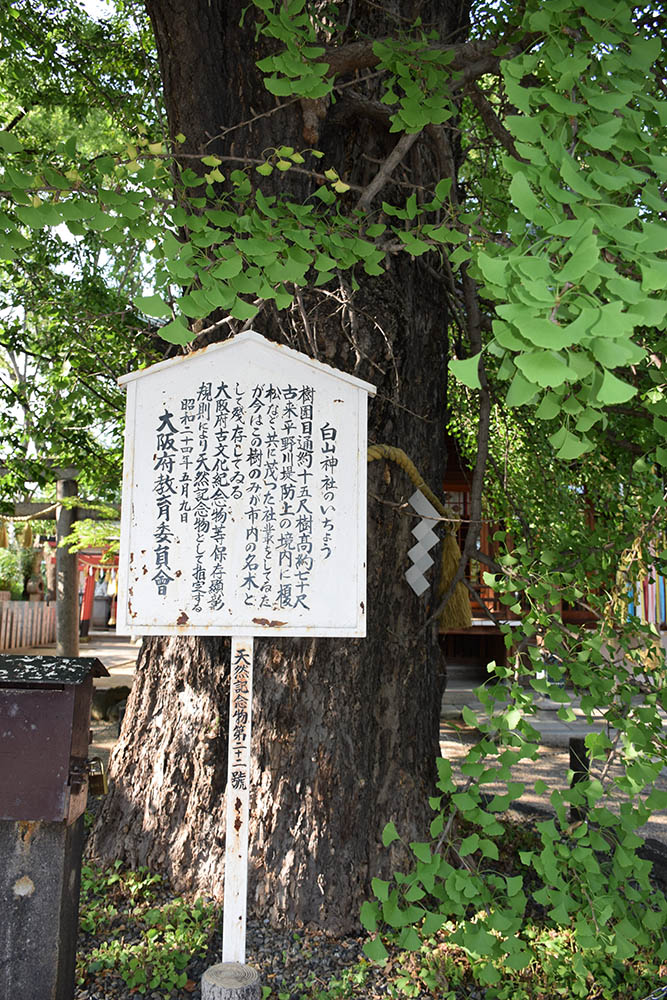 白山神社のいちょう
樹囲目通約十五尺樹高約七十尺
古来平野川堤防上の境内に榎
松などと共に茂つた社叢としてゐた
が今はこの樹のみが市内の名木と
して残存してゐる
大阪府古文化紀念物等保存顕彰
規則により天然記念物として指定する
昭和二十四年五月九日
大阪府教育委員會
天然記念物第二十二號